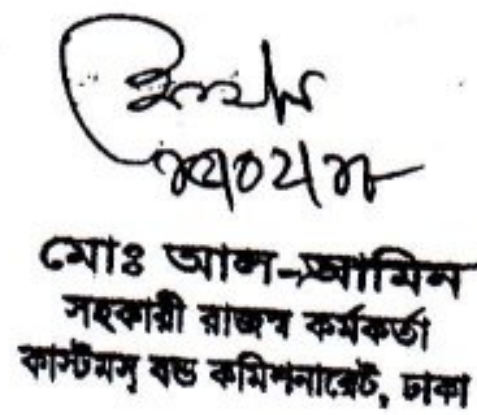 মোঃ আল-আমিন
সহকারী রাজস্ব কর্মকর্তা
কাস্টমস্ বন্ড কমিশনারেট, ঢাকা